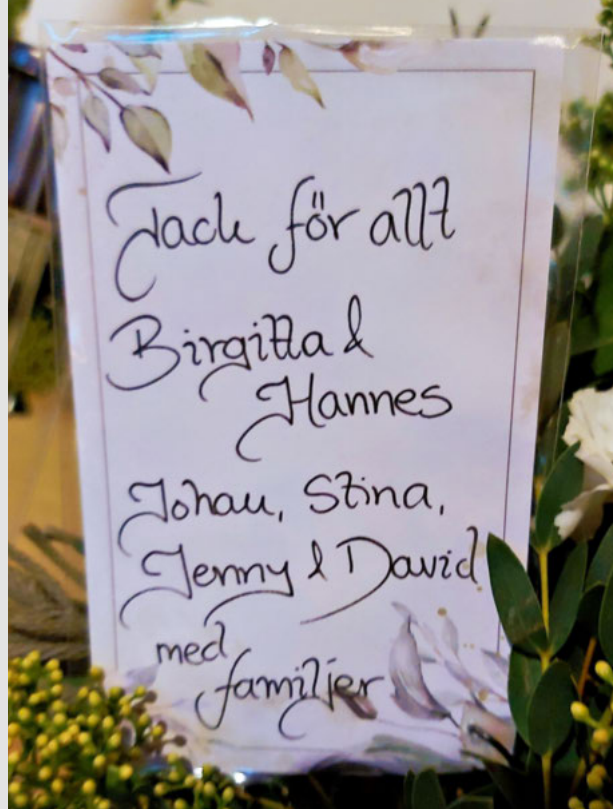 Tack för allt
Birgitta &
Hannes
Johan, Stina,
Jenny & David
med
familjer